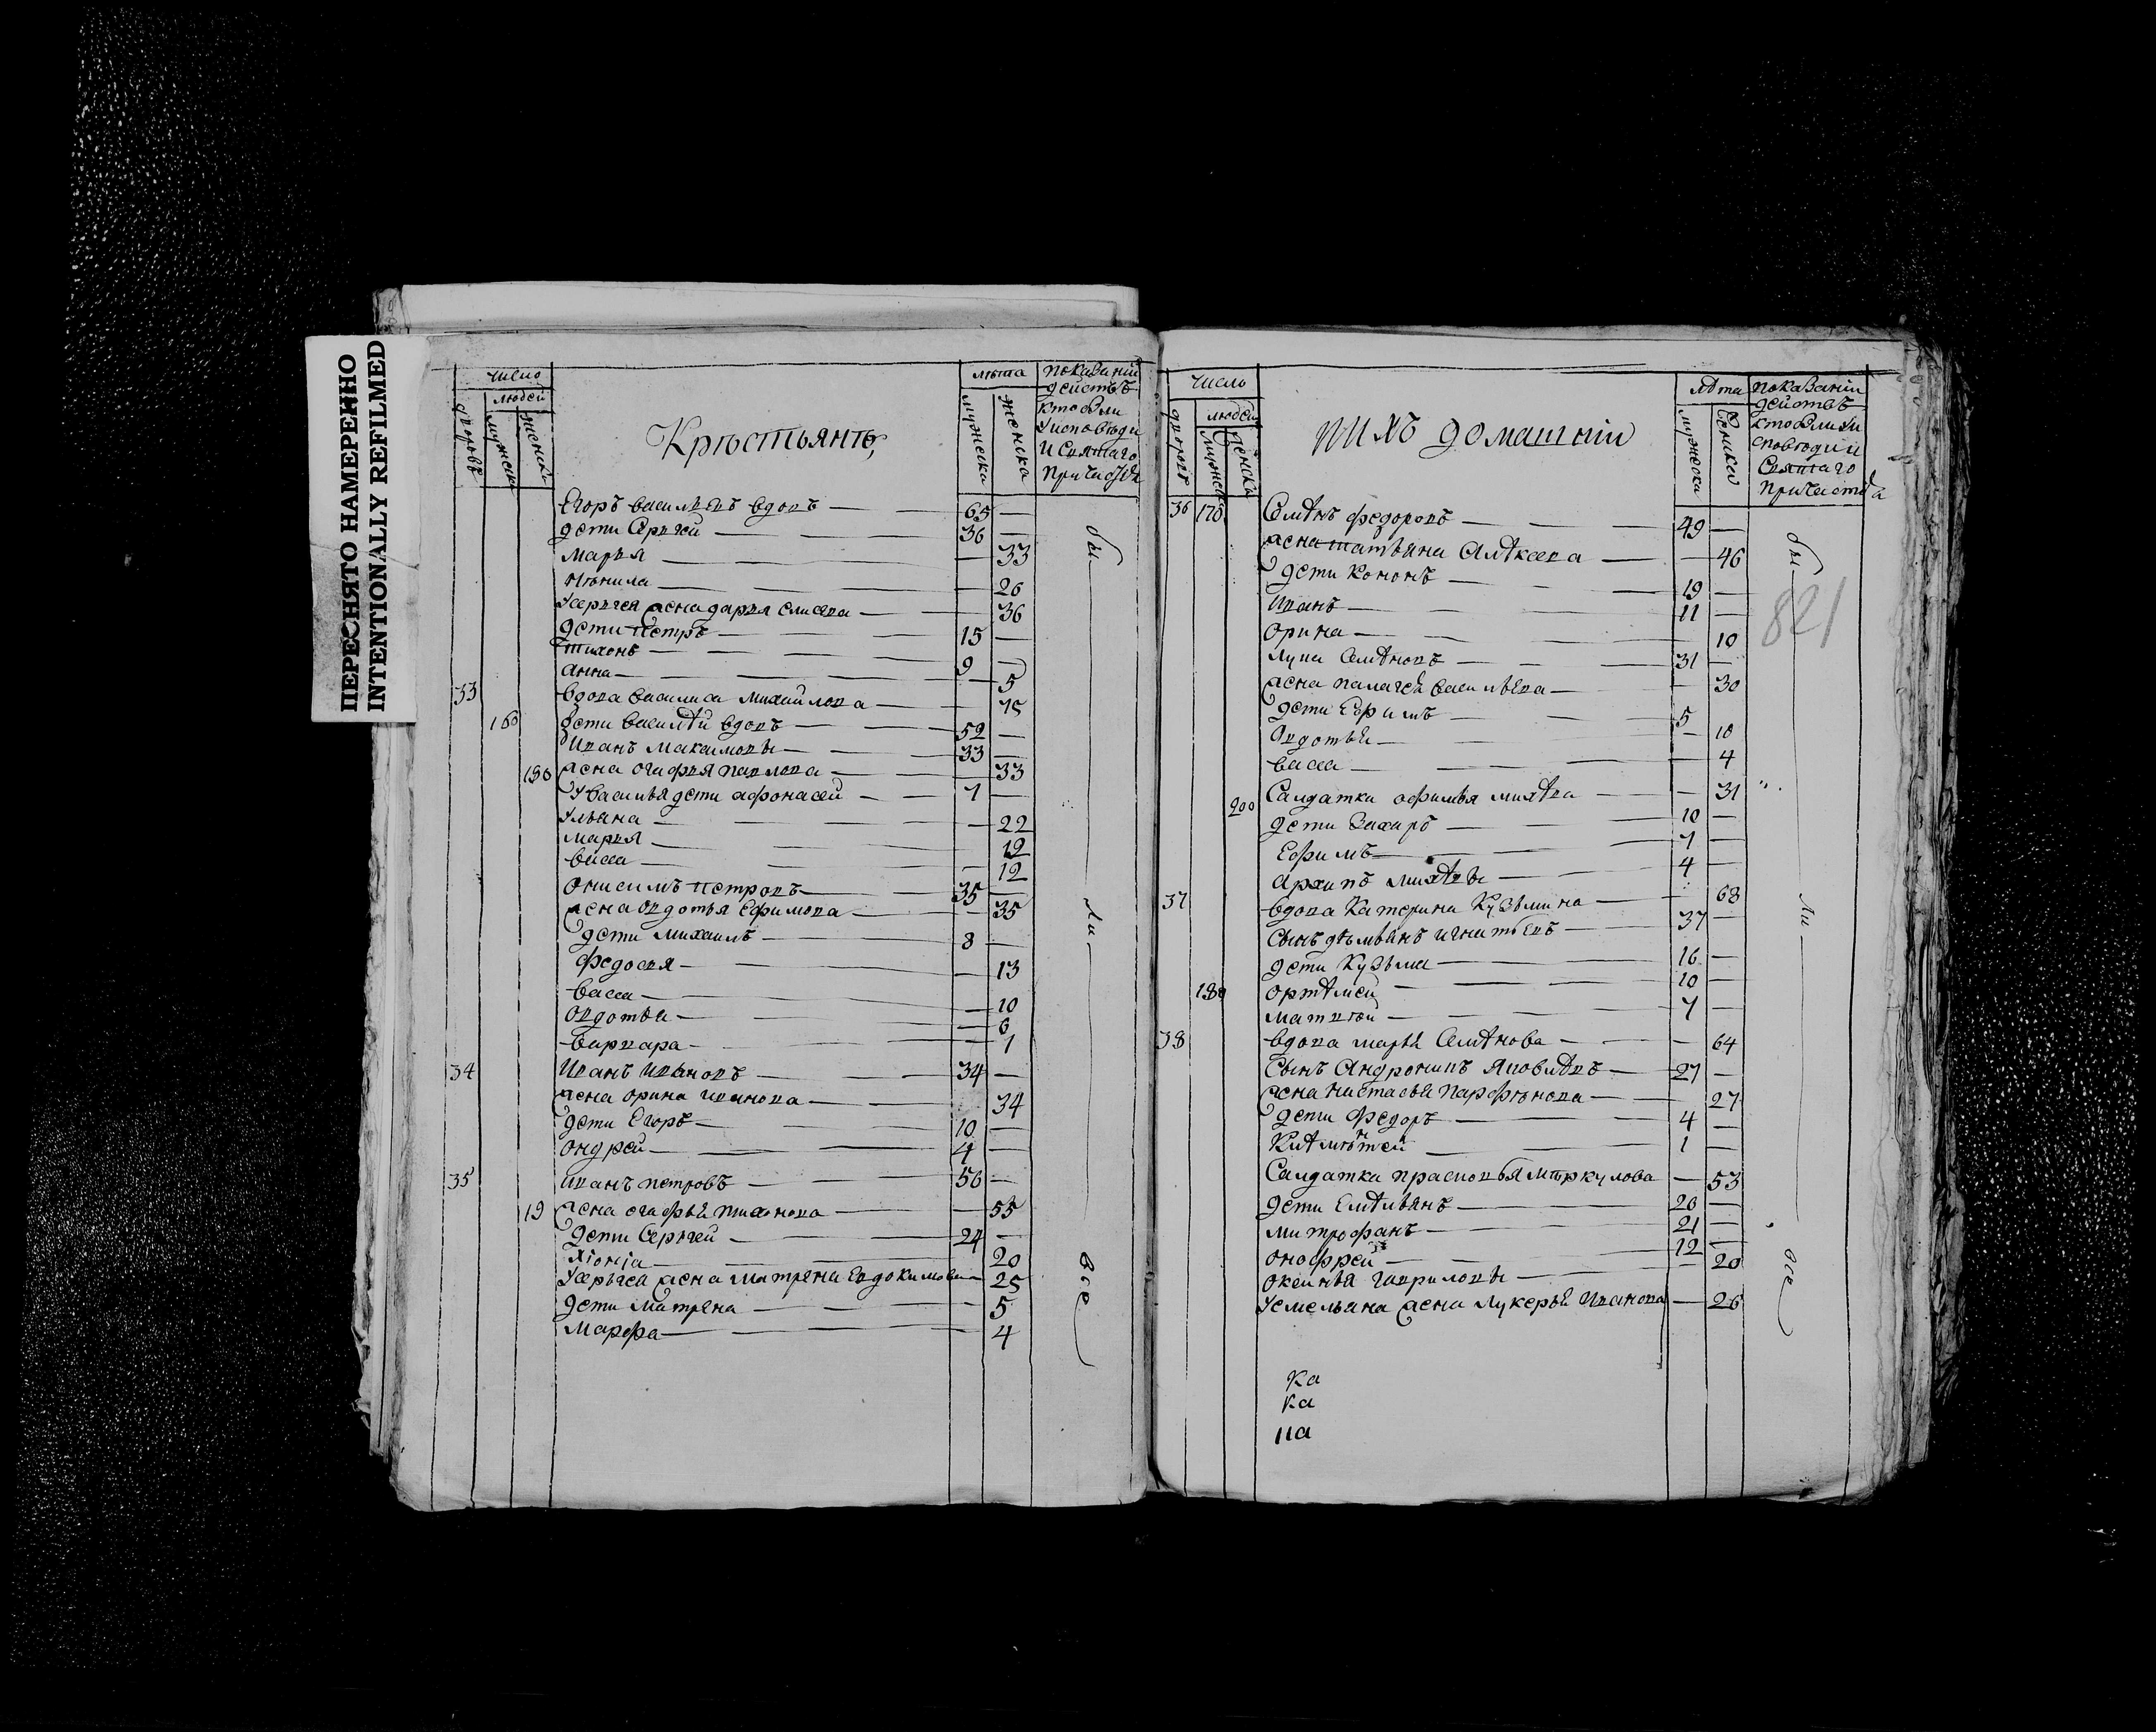 ПЕРЕСНЯТО НАМЕРЕННО
INTENTIONALLY REFILMED
число
людей
дворовъ
мужеска
женска
Крѣстьянѣ,
лѣта
мужеска
женска
показаніи
действъ
кто были
у исповѣди
и Святаго
Причастія
Егоръ васильевъ вдовъ 65
дети Сергѣй 36
марья 33
26
Усергея жена дарья елисева 36
дети петръ 15
тихонъ 9
анна 5
33 вдова василиса михаилова 75
160 дети василѣй вдовъ 52
иванъ максимовы 33
190 жена огафья павлова 33
Увасилья дети афонасей 7
Ульяна 22
марья 12
васса 12
онисимъ петровъ 35
жена овдотья Ефимова 35
дети михаилъ 8
федосья 13
васса 10
овдотья 6
варвара 1
34 Иванъ ивановъ 34
жена орина иванова 34
дети Егоръ 10
ондрей 4
35 иванъ петровъ 56
19 жена огафья тихонова 55
дети Сергѣй 24
хіонія 20
Усергея жена матрена Евдокимова 25
дети матрена 5
марфа 4
бы
ли
все
число
людей
дворовъ
мужеска
женска
и ихъ домашніи
лѣта
мужеска
женска
показаніи
действъ
кто были у и
сповѣди и
Святаго
причастія
36 170 Семѣнъ федоровъ 49
жена татьяна Алѣксева 46
дети кононъ 19
иванъ 11
орина 10
лупа Семѣновъ 31
жена палагея васильева 30
дети Ефимъ 5
Овдотья 10
васса 4
200 Салдатка офимья михѣва 31
дети Захаръ 10
Ефимъ 7
архипъ михѣвы 4
37 вдова Катерина Кузьмина 68
Сынъ дѣмьянъ игнатьевъ 37
дети Кузьма 16
180 ортѣмей 10
матвѣй 7
38 вдова марья Семѣнова 64
Сынъ Андроникъ Яковлѣвъ 27
жена настасья парфѣнова 27
дети федоръ 4
1
Салдатка прасковья мѣркулова 53
дети Емѣльянъ 20
митрофанъ 21
онофрей 12
оксинья гавриловы 20
Уемельяна жена лукерья иванова 26
бы
ли
все
821
ка
ка
на